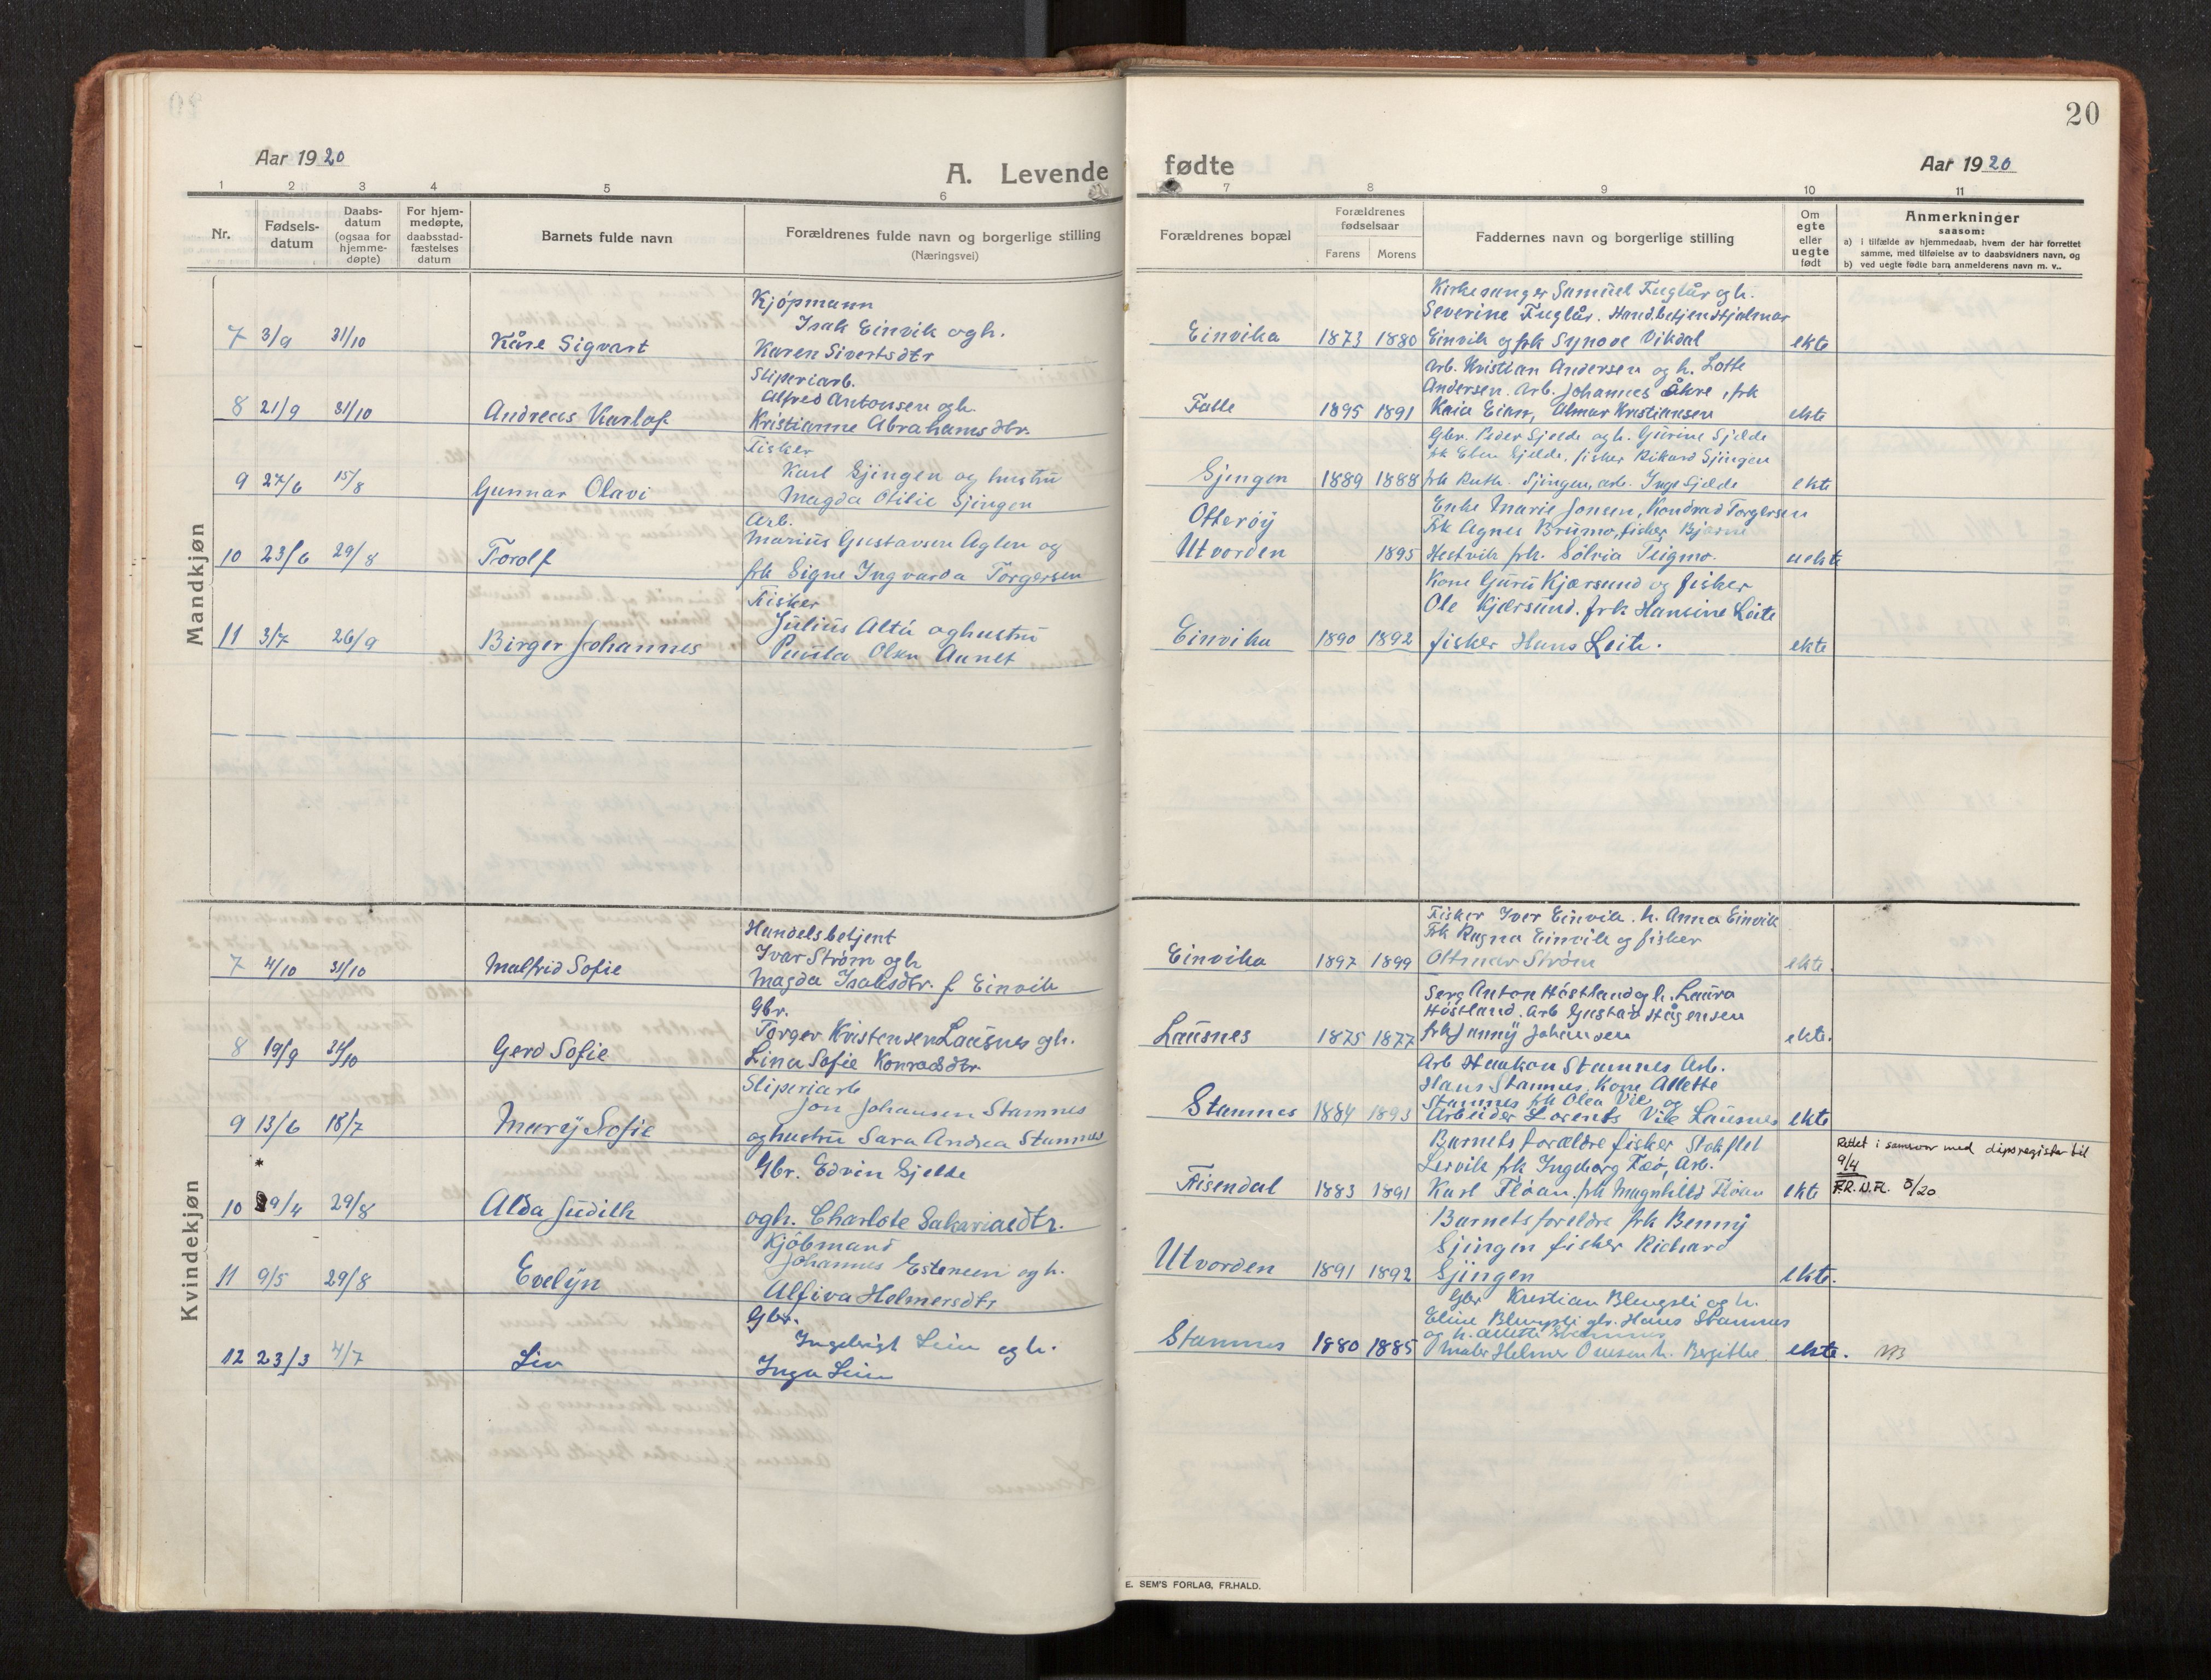 20
Aar 1920
A. Levende
fødte
Aar 1920
1 2 3 4 5 6 7 8 9 10 11
Nr.
Fødsels-
datum
Daabs-
datum
(ogsaa for
hjemme-
døpte)
For hjem-
medøpte,
daabsstad-
fæstelses
datum
Barnets fulde navn
Forældrenes fulde navn og borgerlige stilling
(Næringsvei)
Forældrenes bopæl
Forældrenes
fødselsaar
Farens Morens
Faddernes navn og borgerlige stilling
Om
egte
eller
uegte
født
Anmerkninger
saasom:
a) i tilfælde av hjemmedaab, hvem der har forrettet
samme, med tilføielse av to daabsvidners navn, og
b) ved uegte fødte barn anmelderens navn m. v..
Mandkjøn
7 3/9 31/10 Kåre Sigvart
Kjópmann
Isak Einvik og h.
Karen Sivertsdtr
Einvika 1873 1880
Kirkesanger Samuel Fuglår og h.
Severine Fuglår. Handbetjen Hjalmar
Einvik og frk Synove Vikdal
ekte
8 21/9 31/10 Andreas Karlof
Sliperiarb.
Alfred Antonsen og h.
Kristianne Abrahamsdtr.
Falle 1895 1891
Arb. Kristian Andersen og h. Lotte
Andersen. Arb. Johannes Åkre, frk
Kaia Eian, Almar Kristiansen
ekte
9 27/6 15/8 Gunnar Olavi
Fisker
Karl Gjingen og hustru
Magda Otilie Sjingen
Sjingen 1889 1888
Gbr. Peder Sjelde og h. Gurine Sjelde
frk Elen Sjelde, fisker Rikard Sjingen
frk Ruth Sjingen, arb. Inge Sjelde
ekte
10 23/6 29/8 Torolf
Arb.
Marius Gustavsen Aglen og
frk Signe Ingvarda Torgersen
Otterøy
Utvorden 1895
Enke Marie Jonsen, Kondrad Torgersen
Frk Agnes Brumo, fisker Bjarne
Hestvik frk. Sólvia Teigmo.
uekte
11 3/7 26/9 Birger Johannes
Fisker
Julius Altú og hustru
Paula Olsn Aunet
Einvika 1890 1892
Kone Guru Kjærsund og fisker
Ole Kjærsund. frk Hansine Leite
fisker Hans Leite.
ekte
Kvindekjøn
7 4/10 31/10 Malfrid Sofie
Handelsbetjent
Ivar Strøm og h
Magda Isaksdtr. f. Einvik
Einvika 1897 1899
Fisker Iver Einvik. h. Anna Einvik
Frk Ragna Einvik og fisker
Ottmar Strøm
ekte.
8 19/9 31/10 Gerd Sofie
Gbr.
Torger Kristensen Lausnes og h.
Lina Sofie Konradsdtr
Lausnes 1875 1877
Serg Anton Höstland og h. Laura
Höstland. Arb Gustav Hågensen
frk Jenny Johansen
ekte.
9 13/6 18/7 Mary Sofie
Sliperiarb
Jon Johansen Stamnes
og hustru Sara Andrea Stamnes
Stamnes 1884 1893
Arb Haakon Stamnes Arb.
Hans Stamnes, Kone Allette
Stamnes frk Olea Vik og
Arbeider Lorents Vik Lausnes
ekte
10 9/4 29/8 Alda Judith
Gbr. Edvin Gjelde
og h. Charlote Sakariasdtr.
Fisendal 1883 1891
Barnets forældre fisker Stokflet
Lervik frk Ingeborg Fæø, Arb.
Karl Flóan, frk Magnhild Flóan
ekte
Rettet i samsvar med dåpsregister til
9/4
F.R.N.R. 5/20
11 9/5 29/8 Evelyn
Kjöbmand
Johannes Estensen og h.
Alfiva Helmersdtr
Utvorden 1891 1892
Barnets foreldre frk Benny
Sjingen fisker Richard
Sjingen
ekte.
12 23/3 4/7 Liv
Gbr.
Ingebrigt Lein og h.
Inga Lein
Stamnes 1880 1885
Gbr Kristian Blengsli og h.
Eline Blengsli gbr. Hans Stamnes
og h. Allette Stamnes
Maler Helmer Olsen h. Bergithe
ekte.
E. SEM'S FORLAG, FR.HALD.